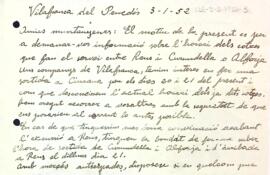 Vilafranca del Penedès 3-1-52
Amics muntanyencs: El motiu de la present és per
a demanar-vos informació sobre l'horari dels cotxes
que fan el servei entre Reus i Cornudella o Alforja
Uns companys de Vilafranca, tenim intenció de fer una
sortida a per als dies 20 i 21 del present i
com que desconeixem l'actual horari dels citats cotxes,
hem cregut recórrer a vosaltres amb la seguretat de que
ens posarieu al corrent lo antes possible.
En cas de que tinguessin una bona combinació acabant
l'excursió a Reus, tinguem la bondat de fer-nos saber
l'hora de sortida de Cornudella i Alforja i d'arribada
a Reus el dilluns dia 21.
Amb mercès anticipades, disposeu si en quelcom puc